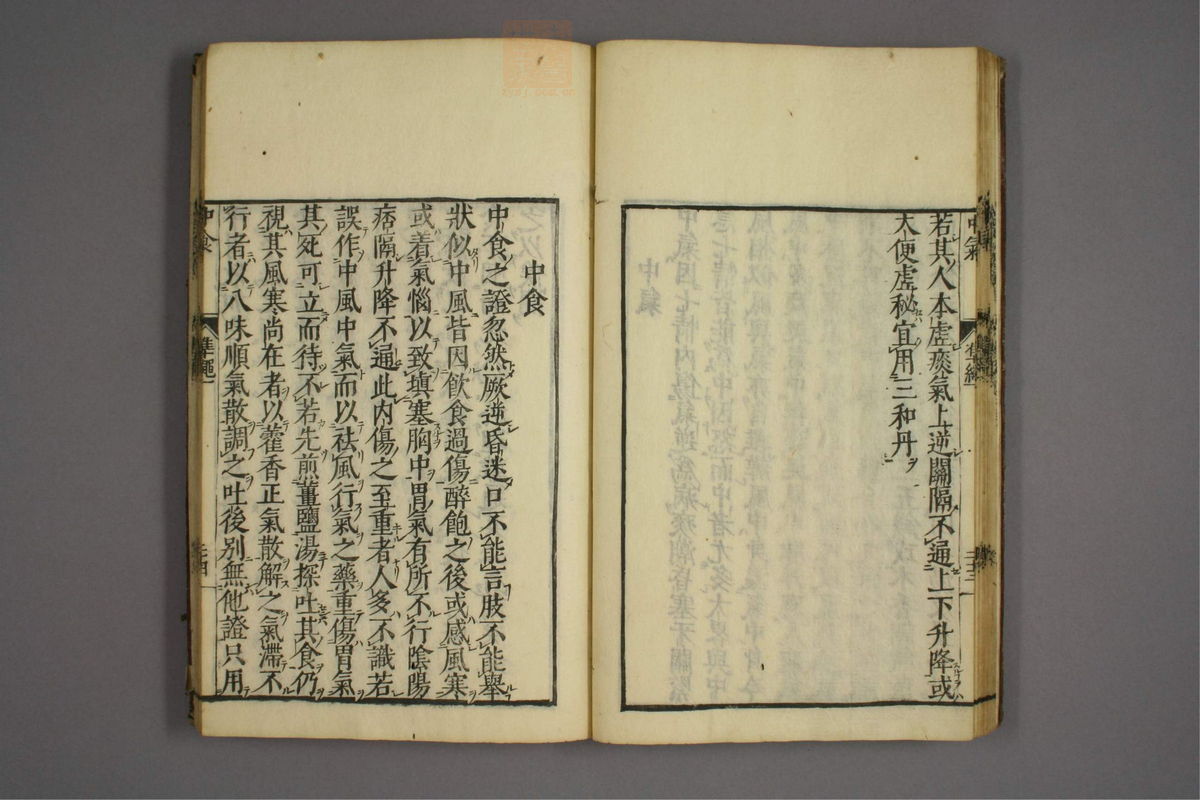 中氣
若其人本虛痰氣上逆關隔不通上下升降或
大便虛秘宜用三和丹
中食
中食之證忽然厥逆昏迷口不能言肢不能舉
狀似中風皆因飲食過傷醉飽之後或感風寒
或着氣惱以致填塞胸中胃氣有所不行陰陽
痞隔升降不通此內傷之至重者人多不識若
誤作中風中氣而以祛風行氣之藥重傷胃氣
其死可立而待不若先煎薑鹽湯探吐其食仍
視其風寒尚在者以藿香正氣散解之氣滯不
行者以八味順氣散調之吐後別無他證只用
中食
準繩